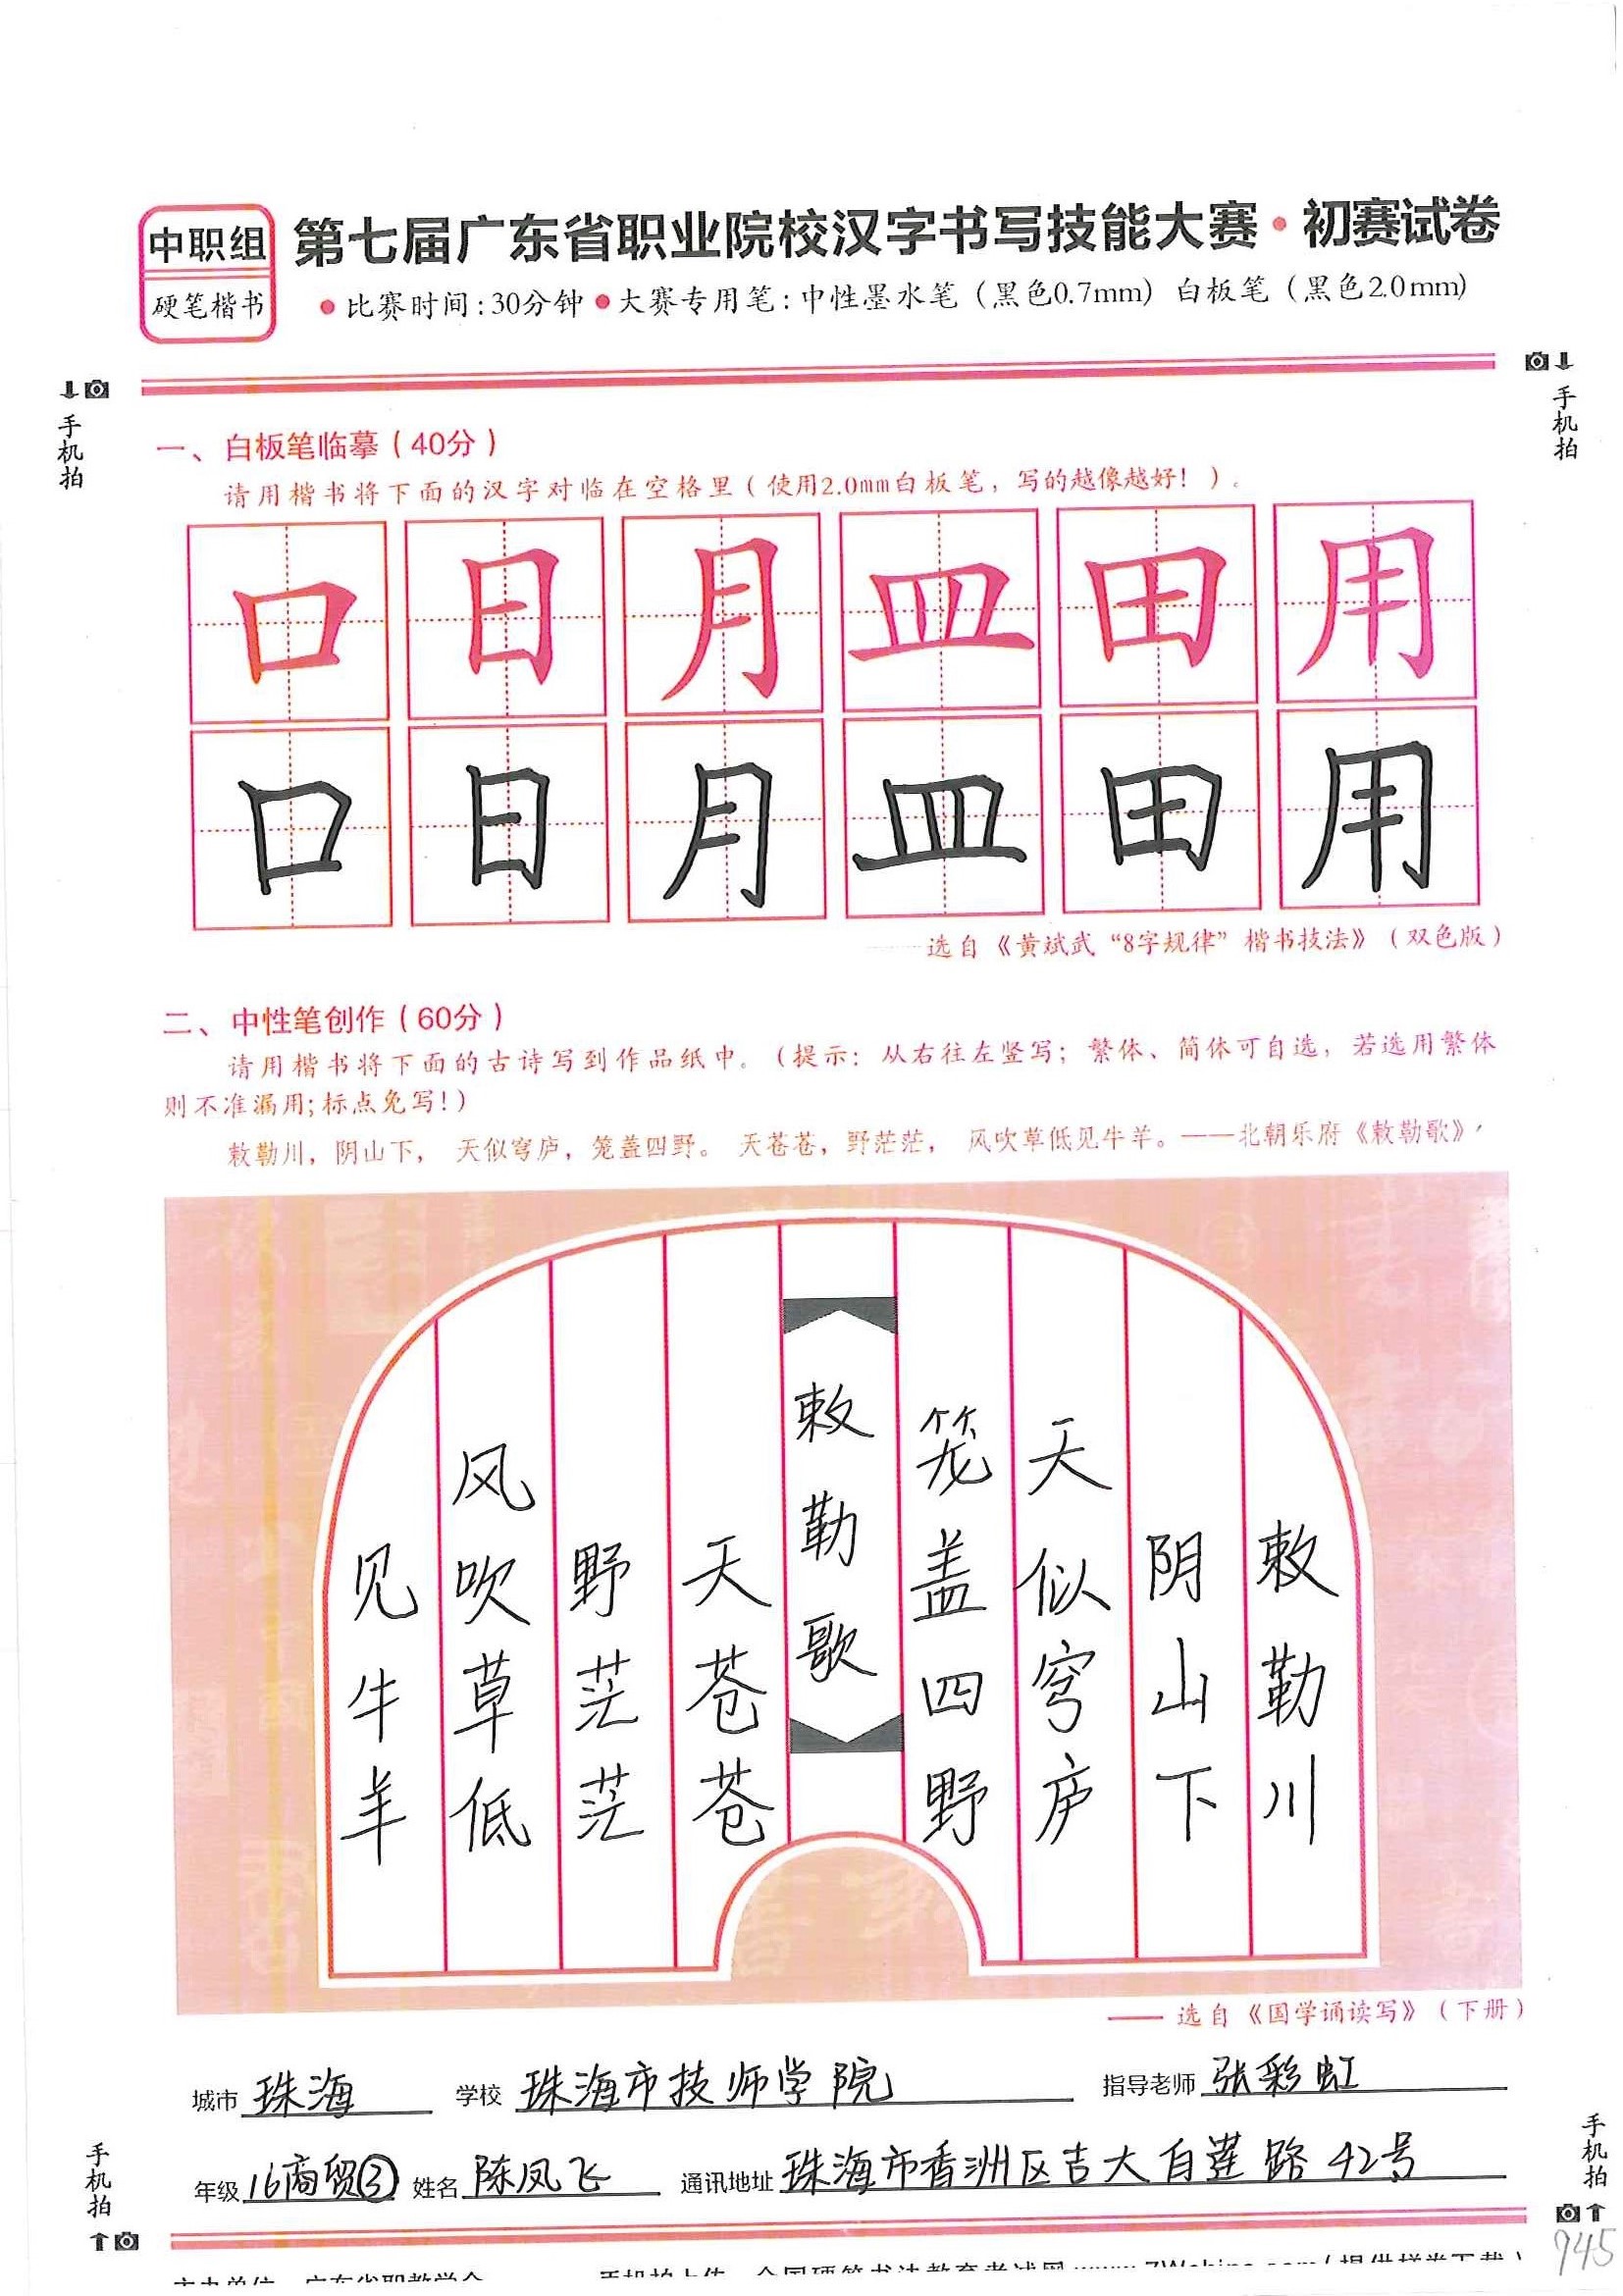 中职组
硬笔楷书
第七届广东省职业院校汉字书写技能大赛·初赛试卷
●比赛时间:30分钟●大赛专用笔:中性墨水笔（黑色0.7mm）白板笔（黑色2.0mm）
手机拍
手机拍
一、白板笔临摹（40分）
请用楷书将下面的汉字对临在空格里（使用2.0mm白板笔，写的越像越好！）。
口日月皿田用
口日月皿田用
选自《黄斌武“8字规律”楷书技法》（双色版）
二、中性笔创作（60分）
请用楷书将下面的古诗写到作品纸中。（提示：从右往左竖写；繁体、简体可自选，若选用繁体
则不准漏用;标点免写!）
敕勒川，阴山下， 天似穹庐，笼盖四野。 天苍苍，野茫茫， 风吹草低见牛羊。——北朝乐府《敕勒歌》
敕勒川
阴山下
天似穹庐
笼盖四野
敕勒歌
天苍苍
野茫茫
风吹草低
见牛羊
——选自《国学诵读写》（下册）
城市 珠海 学校 珠海市技师学院 指导老师 张彩虹
年级 16商贸③ 姓名 陈凤飞 通讯地址 珠海市香洲区吉大白莲路42号
手机拍
手机拍
945